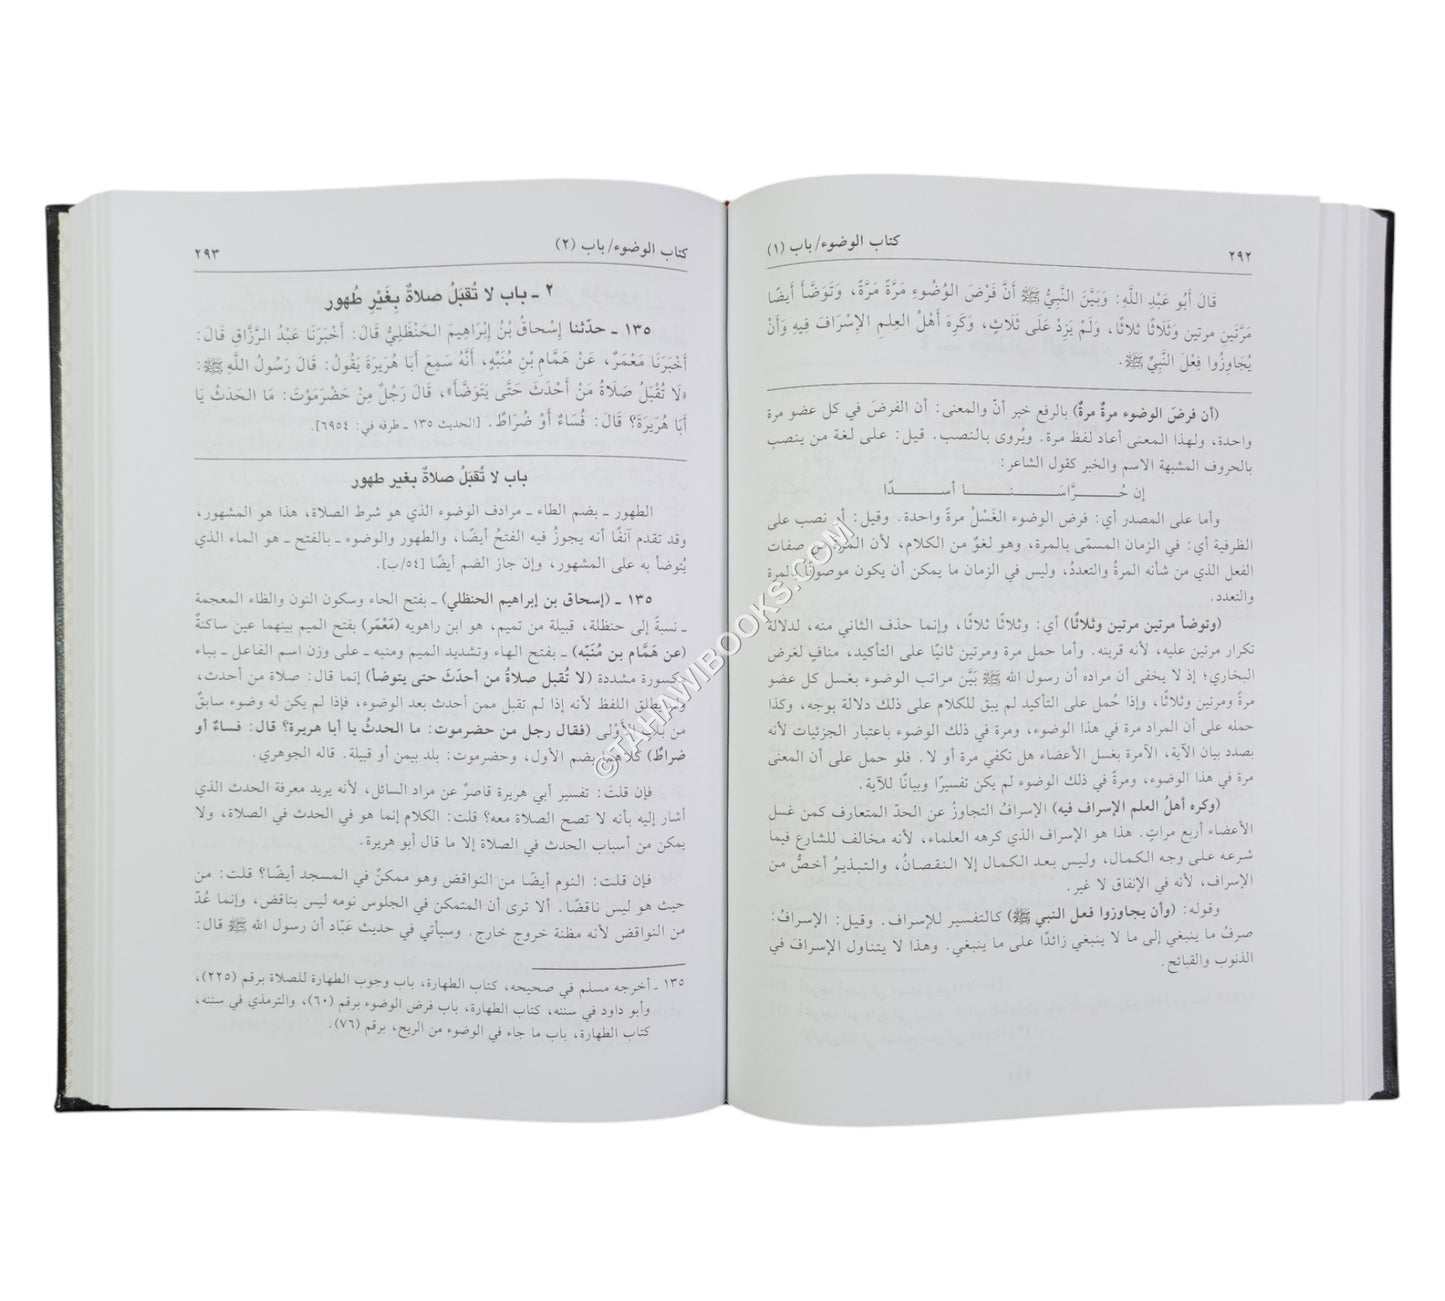 ٢٩٢
كتاب الوضوء/ باب (١)
قَالَ أَبُو عَبْدِ اللَّهِ: وَبَيَّنَ النَّبِيُّ ﷺ أَنَّ فَرْضَ الوُضُوءِ مَرَّةً مَرَّةً، وَتَوَضَّأَ أَيضًا
مَرَّتَين مرتين وَثَلَاثًا ثلاثًا، وَلَمْ يَزِدْ عَلَى ثَلَاثٍ، وَكَرِهَ أَهْلُ العِلمِ الإِسْرَافَ فِيهِ وَأَنْ
يُجَاوِزُوا فِعْلَ النَّبِيِّ ﷺ.
(أن فرضَ الوضوء مرةٌ مرةٌ) بالرفع خبر أنّ والمعنى: أن الفرضَ في كل عضو مرة
واحدة، ولهذا المعنى أعاد لفظ مرة. ويُروى بالنصب. قيل: على لغة من ينصب
بالحروف المشبهة الاسم والخبر كقول الشاعر:
إن حُـرَّاسَـنـا أسـدًا
وأما على المصدر أي: فرض الوضوء الغَسْلُ مرةً واحدة. وقيل: أو نصب على
الظرفية أي: في الزمان المسمّى بالمرة، وهو لغوٌ من الكلام، لأن المرة من صفات
الفعل الذي من شأنه المرةُ والتعددُ، وليس في الزمان ما يمكن أن يكون موصوفًا بالمرة
والتعدد.
(وتوضأ مرتين مرتين وثلاثًا) أي: وثلاثًا ثلاثًا، وإنما حذف الثاني منه، لدلالة
تكرار مرتين عليه، لأنه قرينه. وأما حمل مرة ومرتين ثانيًا على التأكيد، منافٍ لغرض
البخاري؛ إذ لا يخفى أن مراده أن رسول الله ﷺ بَيَّن مراتب الوضوء بغسل كل عضو
مرةً ومرتين وثلاثًا، وإذا حُمل على التأكيد لم يبق للكلام على ذلك دلالة بوجه، وكذا
حمله على أن المراد مرة في هذا الوضوء، ومرة في ذلك الوضوء باعتبار الجزئيات لأنه
بصدد بيان الآية، الآمرة بغسل الأعضاء هل تكفي مرة أو لا. فلو حمل على أن المعنى
مرة في هذا الوضوء، ومرةً في ذلك الوضوء لم يكن تفسيرًا وبيانًا للآية.
(وكره أهلُ العلم الإسراف فيه) الإسرافُ التجاوزُ عن الحدّ المتعارف كمن غسل
الأعضاء أربع مراتٍ. هذا هو الإسراف الذي كرهه العلماء، لأنه مخالف للشارع فيما
شرعه على وجه الكمال، وليس بعد الكمال إلا النقصانُ، والتبذيرُ أخصُّ من
الإسراف، لأنه في الإنفاق لا غير.
وقوله: (وأن يجاوزوا فعل النبي ﷺ) كالتفسير للإسراف. وقيل: الإسرافُ:
صرفُ ما ينبغي إلى ما لا ينبغي زائدًا على ما ينبغي. وهذا لا يتناول الإسرافَ في
الذنوب والقبائح.
كتاب الوضوء/ باب (٢)
٢٩٣
٢ ـ باب لا تُقبَلُ صلاةٌ بِغَيْرِ طُهور
١٣٥ ـ حدّثنا إِسْحاقُ بْنُ إِبْرَاهِيمَ الحَنظَلِيُّ قَالَ: أَخْبَرَنَا عَبْدُ الرَّزَّاقِ قَالَ:
أَخْبَرَنَا مَعْمَرٌ، عَنْ هَمَّامِ بْنِ مُنَبِّهٍ، أَنَّهُ سَمِعَ أَبَا هُرَيرَةَ يَقُولُ: قَالَ رَسُولُ اللَّهِ ﷺ:
«لَا تُقْبَلُ صَلَاةُ مَنْ أَحْدَثَ حَتَّى يَتَوَضَّأَ»، قَالَ رَجُلٌ مِنْ حَضْرَمَوْتَ: مَا الحَدَثُ يَا
أَبَا هُرَيرَةَ؟ قَالَ: فُسَاءٌ أَوْ ضُرَاطٌ. [الحديث ١٣٥ ـ طرفه في: ٦٩٥٤].
باب لا تُقبَلُ صلاةٌ بغير طهور
الطهور ـ بضم الطاء ـ مرادف الوضوء الذي هو شرط الصلاة، هذا هو المشهور،
وقد تقدم آنفًا أنه يجوزُ فيه الفتحُ أيضًا، والطهور والوضوء ـ بالفتح ـ هو الماء الذي
يُتوضأ به على المشهور، وإن جاز الضم أيضًا [٥٤/ب].
١٣٥ ـ (إسحاق بن إبراهيم الحنظلي) ـ بفتح الحاء وسكون النون والظاء المعجمة
ـ نسبةً إلى حنظلة، قبيلة من تميم، هو ابن راهويه (مَعْمَر) بفتح الميم بينهما عين ساكنةٌ
(عن هَمَّام بن مُنَبّه) ـ بفتح الهاء وتشديد الميم ومنبه ـ على وزن اسم الفاعل ـ بباء
مكسورة مشددة (لا تُقبل صلاةُ من أحدَثَ حتى يتوضأ) إنما قال: صلاة من أحدث،
ولم يطلق اللفظ لأنه إذا لم تقبل ممن أحدث بعد الوضوء، فإذا لم يكن له وضوء سابقٌ
من باب الأَوْلى (فقال رجل من حضرموت: ما الحدثُ يا أبا هريرة؟ قال: فساءٌ أو
ضراطٌ) كلاهما بضم الأول، وحضرموت: بلد بيمن أو قبيلة. قاله الجوهري.
فإن قلتَ: تفسير أبي هريرة قاصرٌ عن مراد السائل، لأنه يريد معرفة الحدث الذي
أشار إليه بأنه لا تصح الصلاة معه؟ قلت: الكلام إنما هو في الحدث في الصلاة، ولا
يمكن من أسباب الحدث في الصلاة إلا ما قال أبو هريرة.
فإن قلت: النوم أيضًا من النواقض وهو ممكنٌ في المسجد أيضًا؟ قلت: من
حيث هو ليس ناقضًا. ألا ترى أن المتمكن في الجلوس نومه ليس بناقض، وإنما عُدّ
من النواقض لأنه مظنة خروج خارج. وسيأتي في حديث عبّاد أن رسول الله ﷺ قال:
١٣٥ ـ أخرجه مسلم في صحيحه، كتاب الطهارة، باب وجوب الطهارة للصلاة برقم (٢٢٥)،
وأبو داود في سننه، كتاب الطهارة، باب فرض الوضوء برقم (٦٠)، والترمذي في سننه،
كتاب الطهارة، باب ما جاء في الوضوء من الريح، برقم (٧٦).
©TAHAWIBOOKS.COM